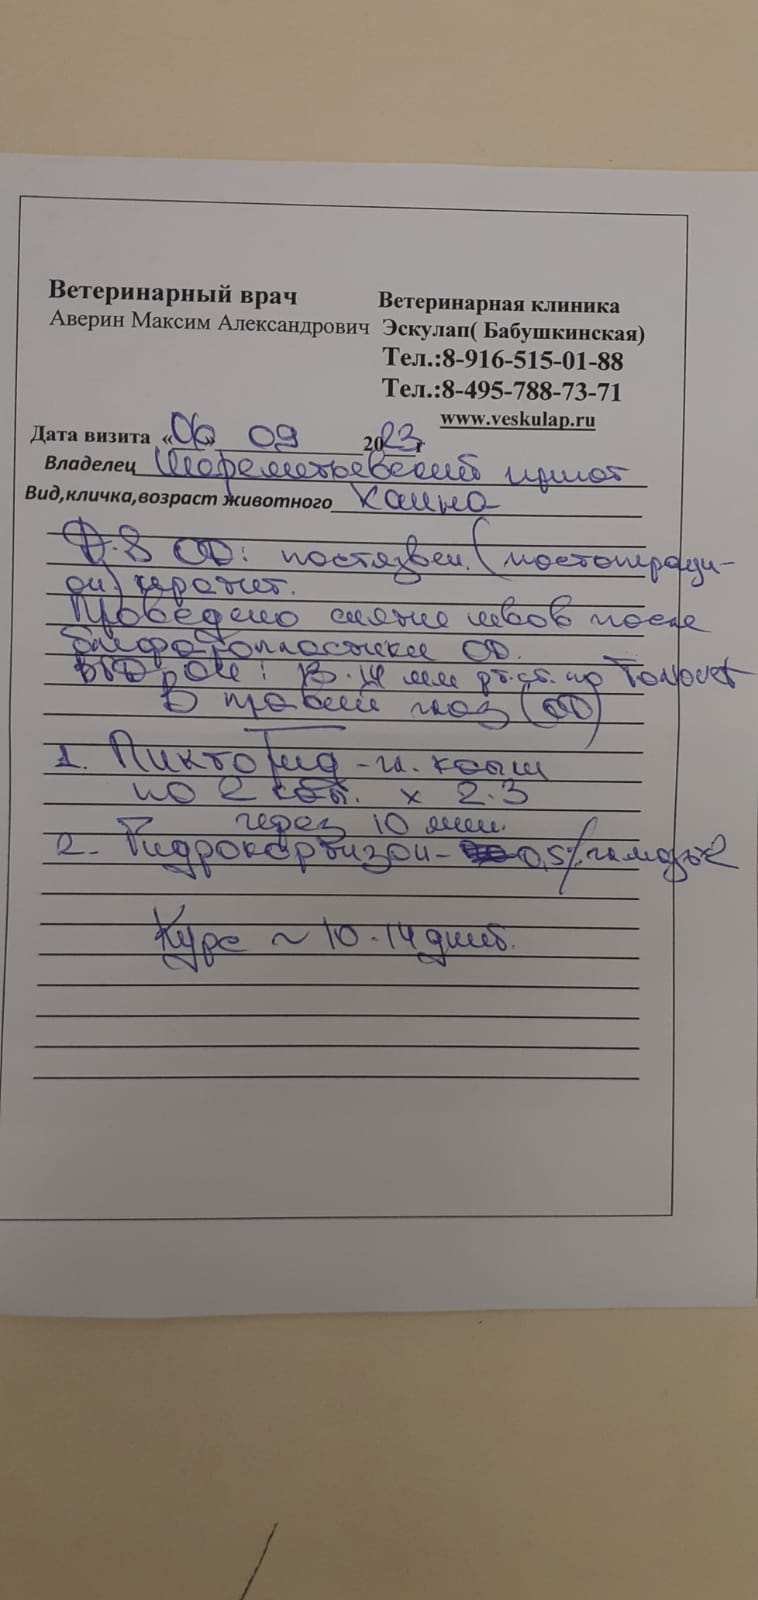 Ветеринарный врач
Аверин Максим Александрович
Ветеринарная клиника
Эскулап( Бабушкинская)
Тел.:8-916-515-01-88
Тел.:8-495-788-73-71
www.veskulap.ru
Дата визита «06» 09 2023г
Владелец Шереметьевский приют
Вид,кличка,возраст животного
Д-з OD: постязвен.
кератит.
Проведено снятие швов после
блефаропластики OD.
ВГД 13-14 мм рт.ст. по Tonovet
В правый глаз (OD)
1.
по 2 кап. х 2-3
через 10 мин.
2. Гидрокортизон - 0,5%
Курс ~ 10-14 дней.